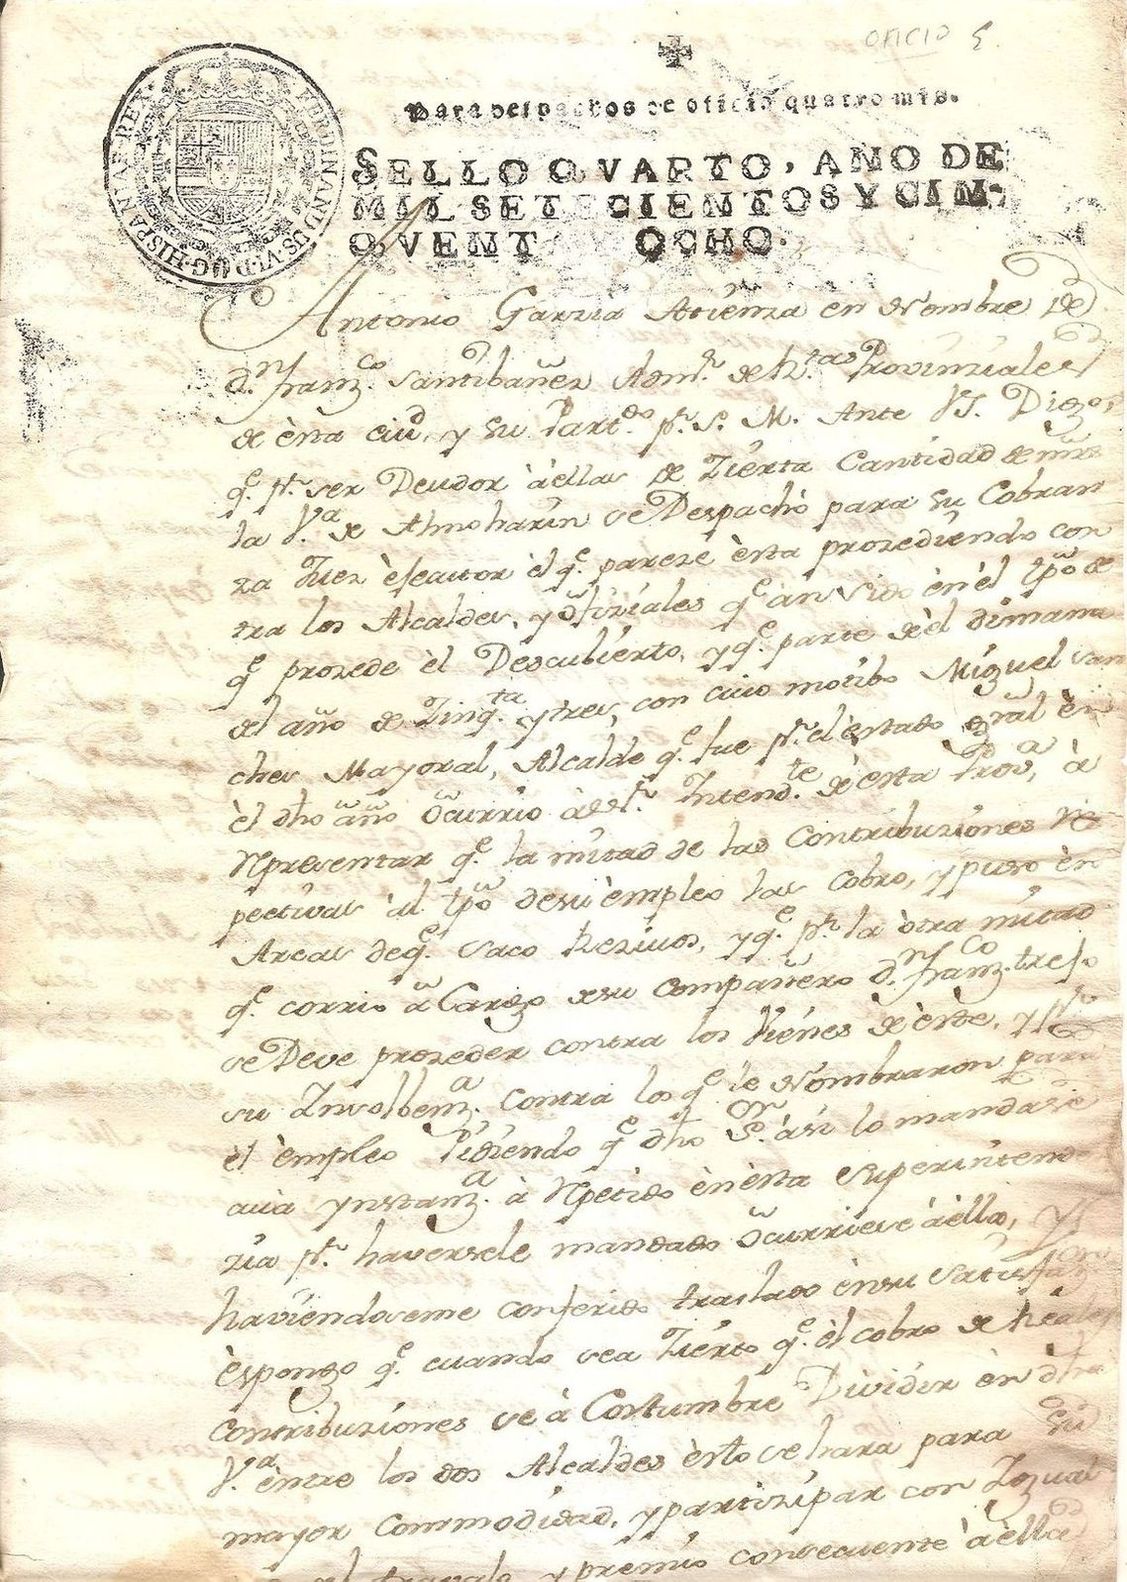 OFICIO 5
Para despachos de oficio quatro mrs.
SELLO QVARTO, AÑO DE
MIL SETECIENTOS Y CIN-
QVENT Y OCHO.
FERDINANDUS·VI·D·G·HISPANIAR·REX
Antonio Garzia Atienza en Nombre de
d.n Franz.co Santibañez Adm.r de R.tas Provinziales
de èsta ciud, y su Part.do p.r S. M. Ante VS. Digo,
q.e p.r ser Deudor àellas de Zierta Cantidad de mrs
la V.a de Almoharin se Despachò para su Cobran
za Juez èsecutor èl q.e pareze èsta prozediendo con
tra los Alcaldes, y ofiziales q.e àn sido en èl tpo de
q.e prozede èl Descubierto, y q.e parte de èl dimana
del año de Zinq.ta y tres, con cuio motibo Miguel San
ches Mayoral, Alcalde q.e fue p.r el èstado gral èn
èl dho año ocurrio à el S.r Intend.te de èsta Prov.a, à
Rpresentar q.e la mitad de las Contribuziones Rs
pectivas àl tpo de su èmpleo las Cobro, y puso èn
Arcas de q.e Saco Rezivos, y q.e p.r la òtra mitad
q.e corrio à Cargo de su Compañero d.n Franz.co
se Deve prozeder contra los Vienes de èste, y p.r
su Insolbenz.a contra los q.e le Nombraron para
el èmpleo Pidiendo q.e dho S.or àsi lo mandase
cuia ynstanz.a à Rpetido èn èsta Superinten
zia p.r haversele mandado ocurriese àella, y
haviendoseme conferido traslado èn su
èspongo q.e cuando sea Zierto q.e èl cobro de Reales
contribuziones se à Costumbre Dividir èn dha
V.a èntre los dos Alcaldes èsto se hara para su
mayor Commodidad, y partizipar con Igual
el travajo y premio consecuente àella